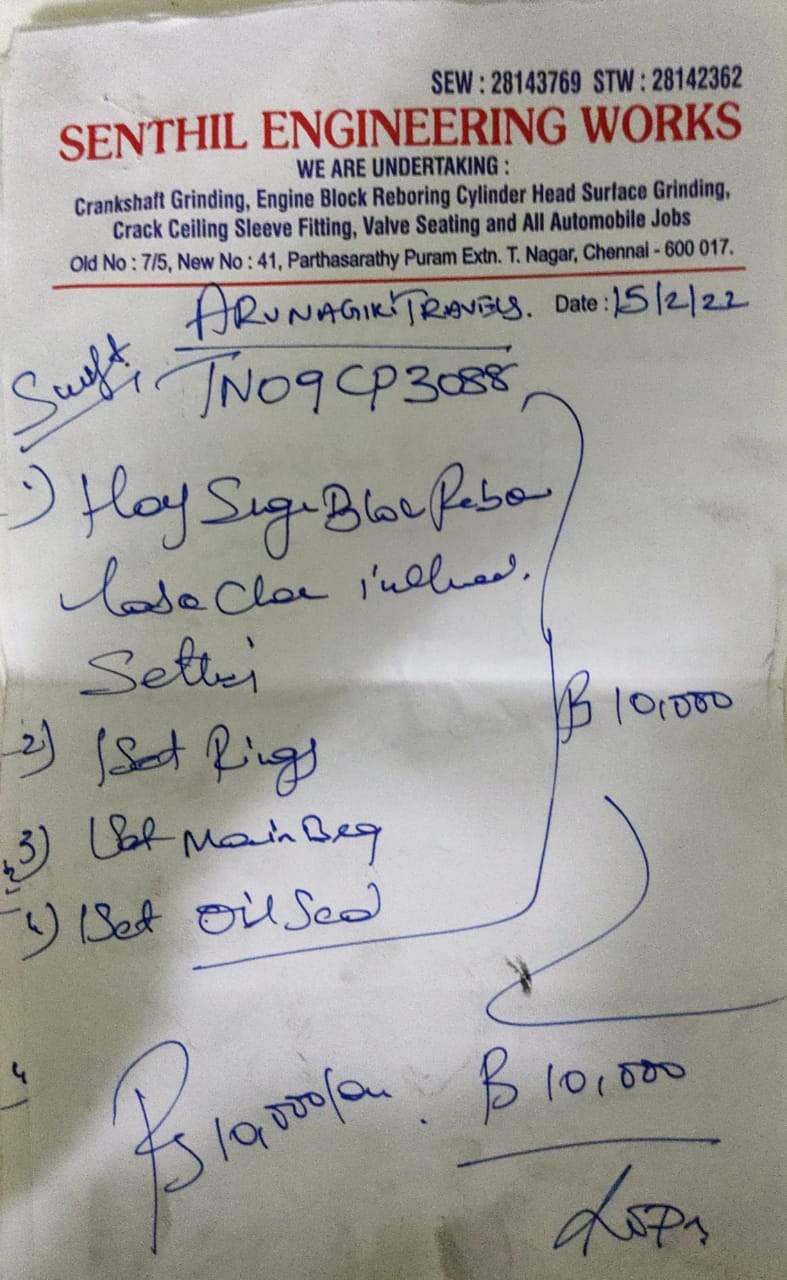 SEW : 28143769 STW : 28142362
SENTHIL ENGINEERING WORKS
WE ARE UNDERTAKING :
Crankshaft Grinding, Engine Block Reboring Cylinder Head Surface Grinding,
Crack Ceiling Sleeve Fitting, Valve Seating and All Automobile Jobs
Old No : 7/5, New No : 41, Parthasarathy Puram Extn. T. Nagar, Chennai - 600 017.
ARUNAGIRI TRAVELS. Date : 15/2/22
Swift, TN09CP3088
1)
2) 1Set Rings
3) 1Set Main Beg
4) 1Set Oil Seal
Rs 10,000
Rs 10,000/- Rs 10,000